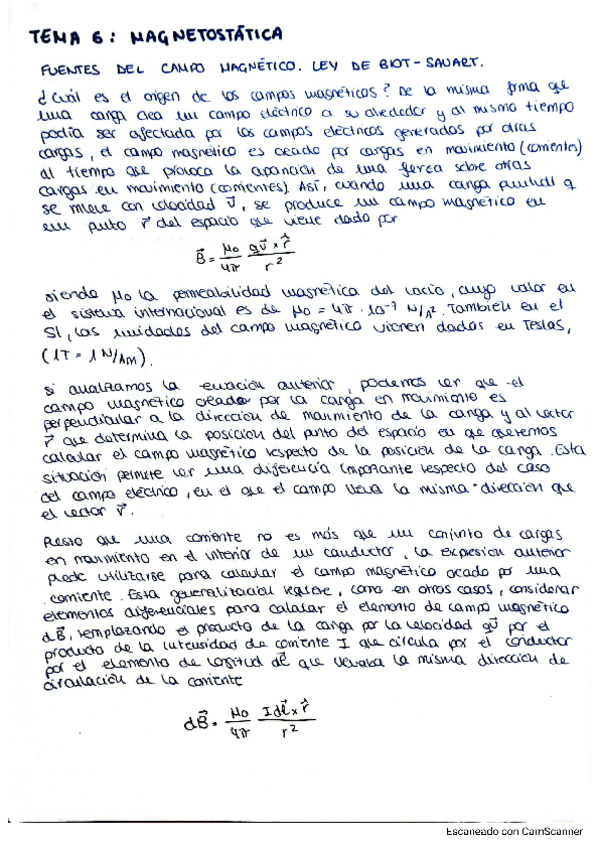 TEMA 6: MAGNETOSTÁTICA
FUENTES DEL CAMPO MAGNÉTICO. LEY DE BIOT-SAVART.
¿Cuál es el origen de los campos magnéticos? De la misma forma que
una carga crea un campo eléctrico a su alrededor y al mismo tiempo
podía ser afectada por los campos eléctricos generados por otras
cargas, el campo magnético es creado por cargas en movimiento (corrientes)
al tiempo que provoca la aparición de una fuerza sobre otras
cargas en movimiento (corrientes). Así, cuando una carga puntual q
se mueve con velocidad v⃗, se produce un campo magnético en
un punto r⃗ del espacio que viene dado por
B⃗ = μ₀/4π qv⃗ × r̂/r²
siendo μ₀ la permeabilidad magnética del vacío, cuyo valor en
el sistema internacional es de μ₀ = 4π · 10⁻⁷ N/A². También en el
SI, las unidades del campo magnético vienen dados en Teslas,
(1T = 1 N/Am).
si analizamos la ecuación anterior, podemos ver que el
campo magnético creado por la carga en movimiento es
perpendicular a la dirección de movimiento de la carga y al vector
r⃗ que determina la posición del punto del espacio en que queremos
calcular el campo magnético respecto de la posición de la carga. Esta
situación permite ver una diferencia importante respecto del caso
del campo eléctrico, en el que el campo lleva la misma dirección que
el vector r⃗.
Puesto que una corriente no es más que un conjunto de cargas
en movimiento en el interior de un conductor, la expresión anterior
puede utilizarse para calcular el campo magnético creado por una
corriente. Esta generalización requiere, como en otros casos, considerar
elementos diferenciales para calcular el elemento de campo magnético
dB⃗, remplazando el producto de la carga por la velocidad qv⃗ por el
producto de la intensidad de corriente I que circula por el conductor
por el elemento de longitud dl⃗ que llevaba la misma dirección de
circulación de la corriente
dB⃗ = μ₀/4π Idl⃗ × r̂/r²
Escaneado con CamScanner